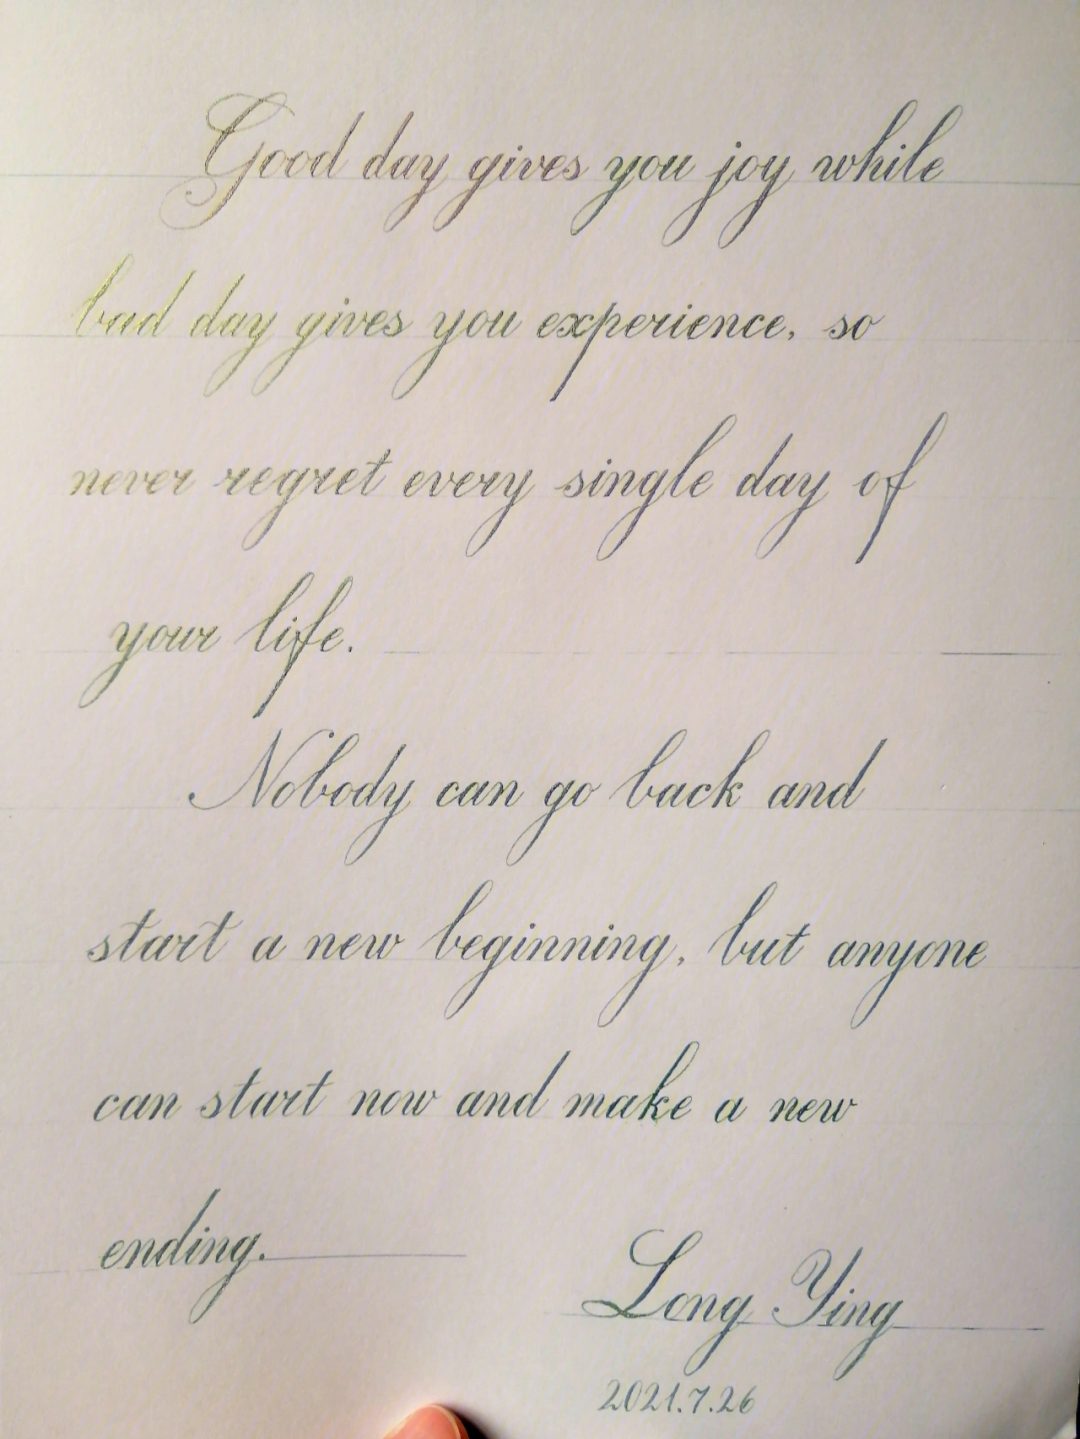 Good day gives you joy while
bad day gives you experience, so
never regret every single day of
your life.
Nobody can go back and
start a new beginning, but anyone
can start now and make a new
ending.
Long Ying
2021.7.26